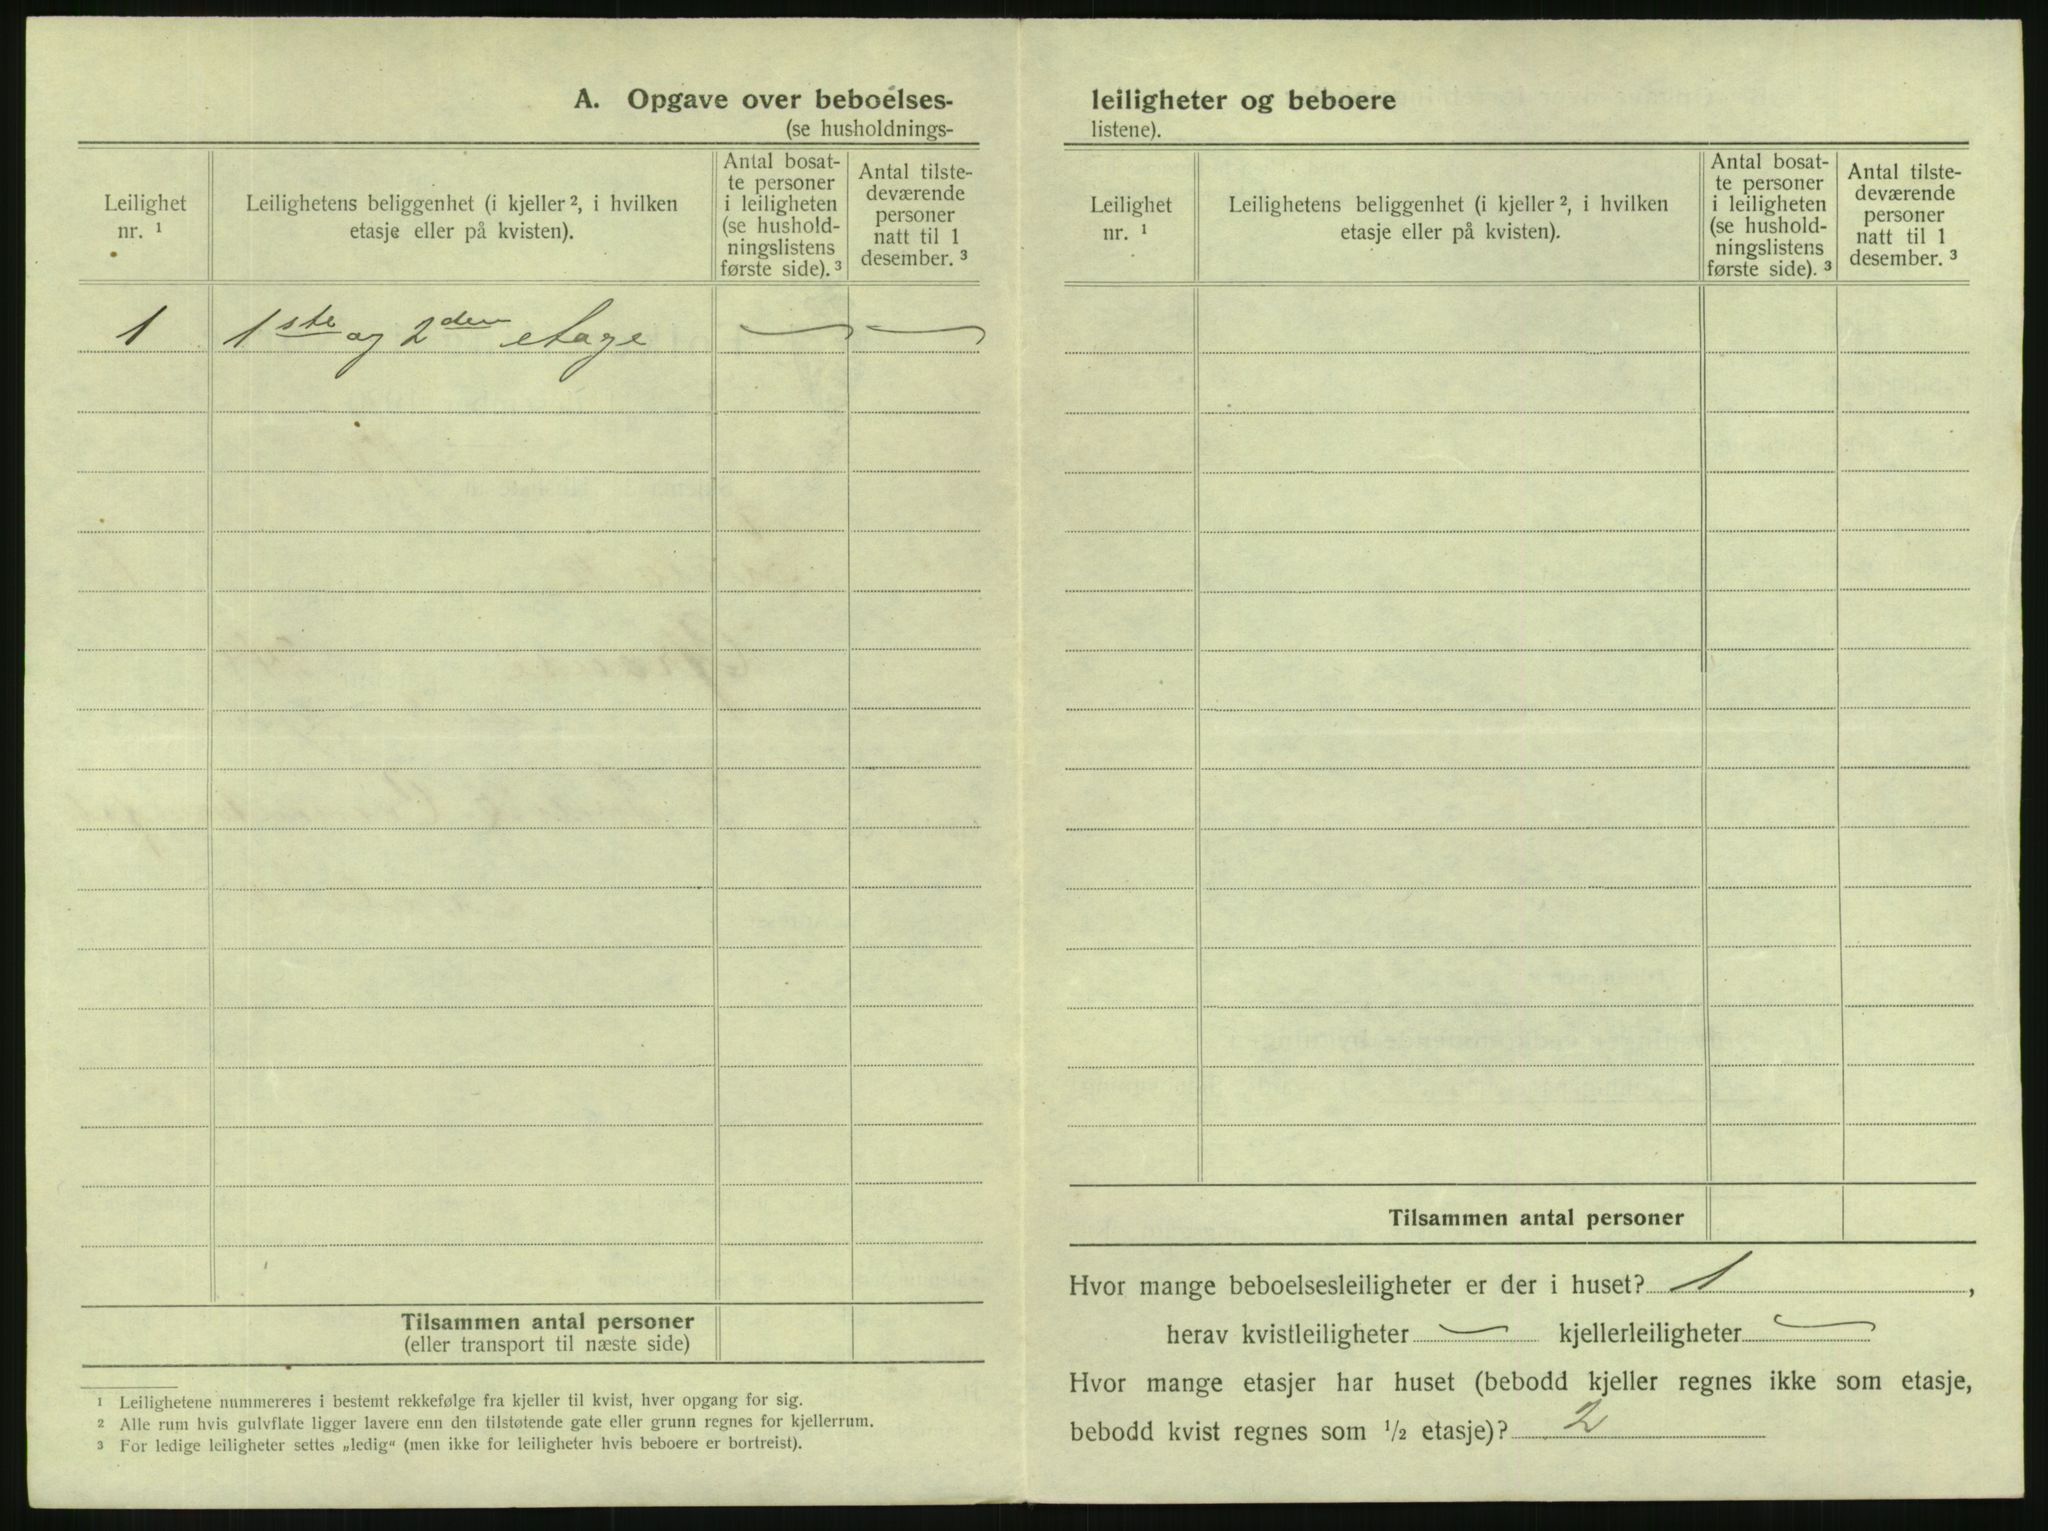 A. Opgave over beboelses-
(se husholdnings-
Leilighet
nr. ¹
Leilighetens beliggenhet (i kjeller ², i hvilken
etasje eller på kvisten).
Antal bosat-
te personer
i leiligheten
(se hushold-
ningslistens
første side). ³
Antal tilste-
deværende
personer
natt til 1
desember. ³
1 1ste og 2den etage — —
Tilsammen antal personer
(eller transport til næste side)
¹ Leilighetene nummereres i bestemt rekkefølge fra kjeller til kvist, hver opgang for sig.
² Alle rum hvis gulvflate ligger lavere enn den tilstøtende gate eller grunn regnes for kjellerrum.
³ For ledige leiligheter settes „ledig“ (men ikke for leiligheter hvis beboere er bortreist).
leiligheter og beboere
listene).
Leilighet
nr. ¹
Leilighetens beliggenhet (i kjeller ², i hvilken
etasje eller på kvisten).
Antal bosat-
te personer
i leiligheten
(se hushold-
ningslistens
første side). ³
Antal tilste-
deværende
personer
natt til 1
desember. ³
Tilsammen antal personer
Hvor mange beboelsesleiligheter er der i huset? 1 ,
herav kvistleiligheter — kjellerleiligheter —
Hvor mange etasjer har huset (bebodd kjeller regnes ikke som etasje,
bebodd kvist regnes som ½ etasje)? 2